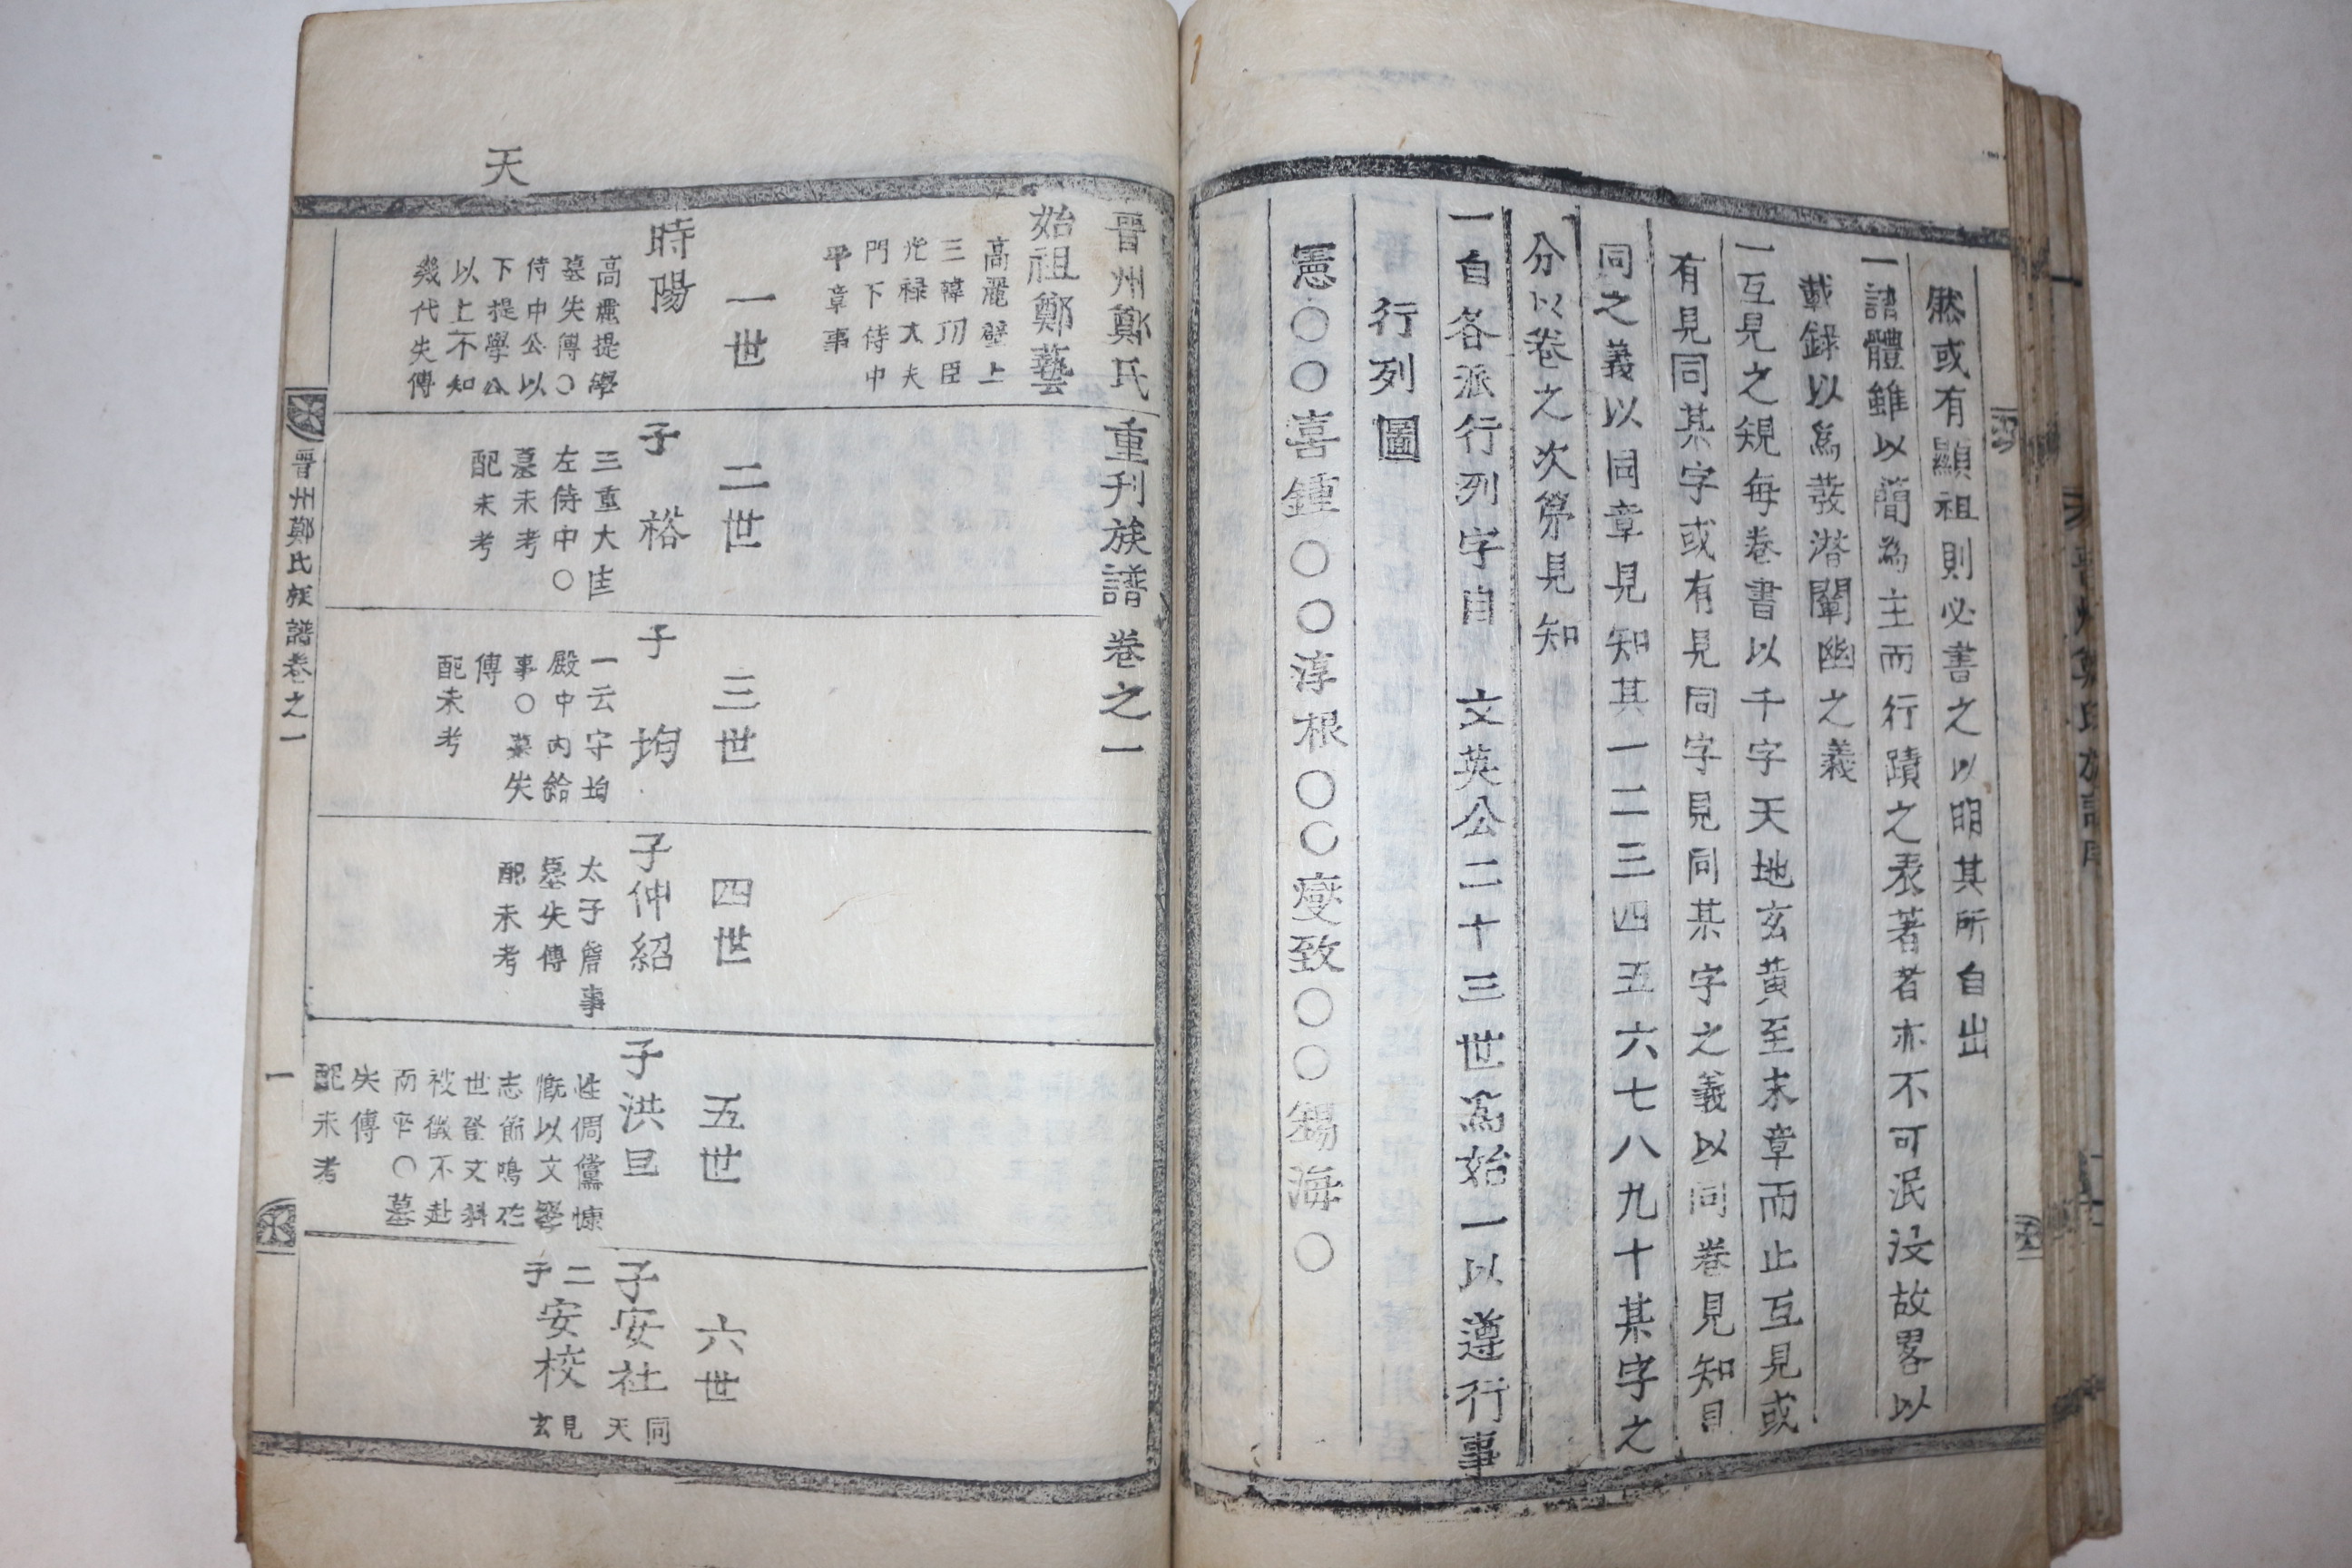 然或有顯祖則必書之以明其所自出
一譜體雖以簡為主而行蹟之表著者亦不可泯沒故畧以
載錄以爲發潛闡幽之義
一互見之規每卷書以千字天地玄黃至末章而止互見或
有見同某字或有見同字見同某字之義以同卷見知見
同之義以同章見知其一二三四五六七八九十某字之
分以卷之次第見知
一自各派行列字自 文英公二十三世爲始一以遵行事
行列圖
憲〇〇喜鍾〇〇淳根〇〇燮致〇〇錫海〇
晋州鄭氏重刊族譜卷之一
始祖鄭藝
高麗壁上
三韓功臣
光禄大夫
門下侍中
平章事
一世
時陽
高麗提學
墓失傳〇
侍中公以
下提學公
以上不知
幾代失傳
二世
子 𥙿
三重大匡
左侍中〇
墓未考
配未考
三世
子 均
一云守均
殿中內給
事〇墓失
傳
配未考
四世
子仲紹
太子詹事
墓失傳
配未考
五世
子洪旦
性倜儻慷
慨以文學
志節鳴於
世登文科
被徵不赴
而卒〇墓
失傳
配未考
六世
子安社 同天
二子安校 見玄
天
晋州鄭氏族譜卷之一
一